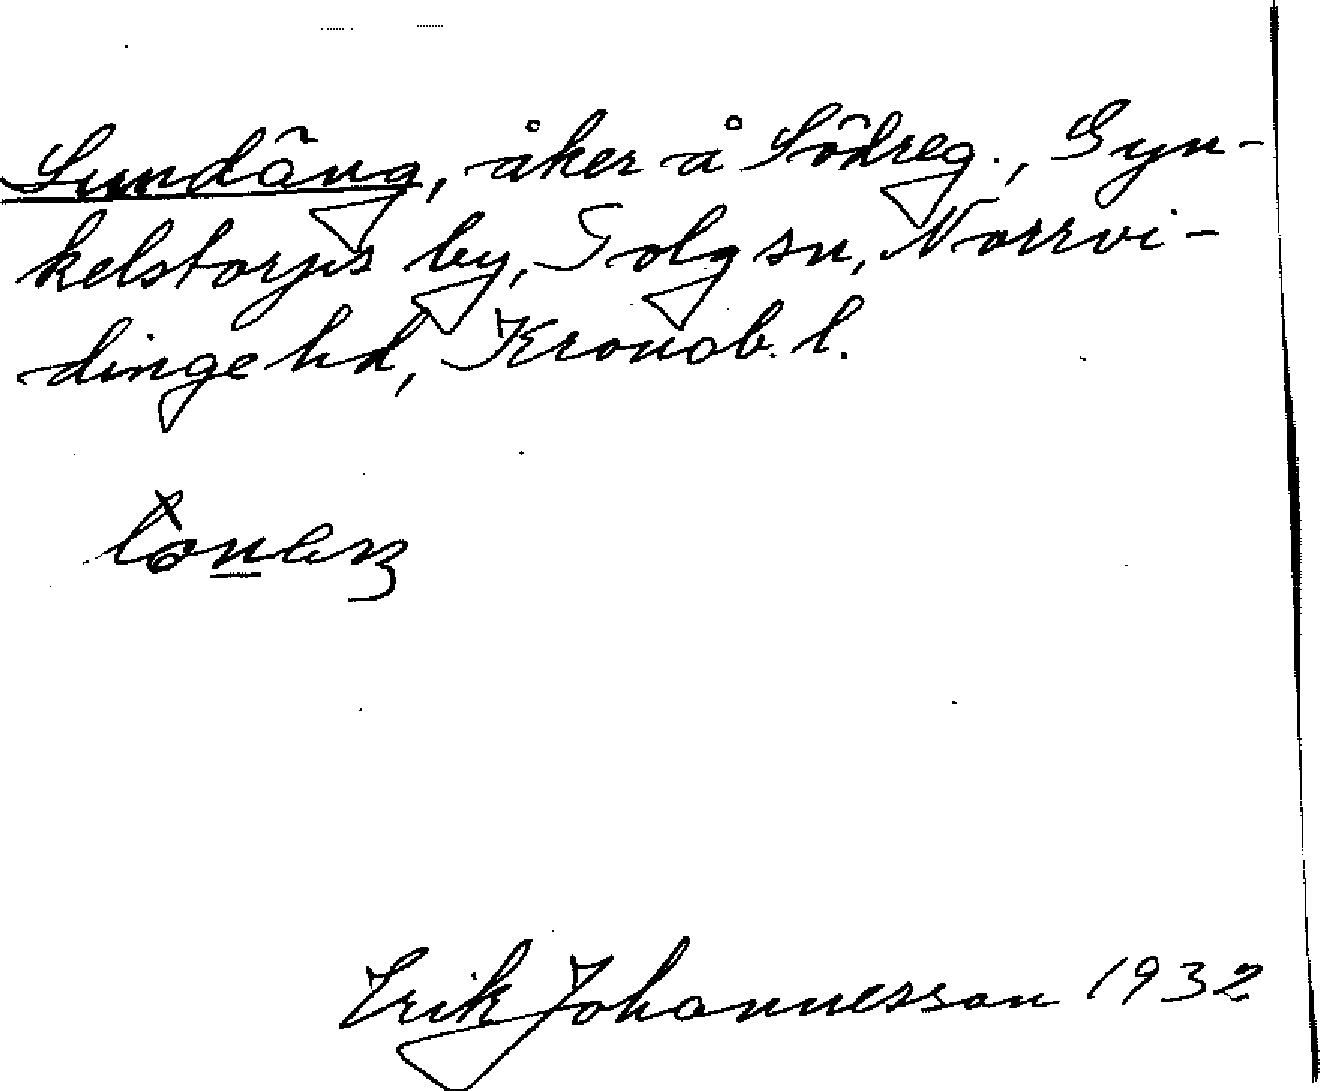 Lundäng, åker å Södreg., Gyn-
kelstorps by, Tolg sn, Norrvi-
dinge hd, Kronob. l.
Erik Johannesson 1932